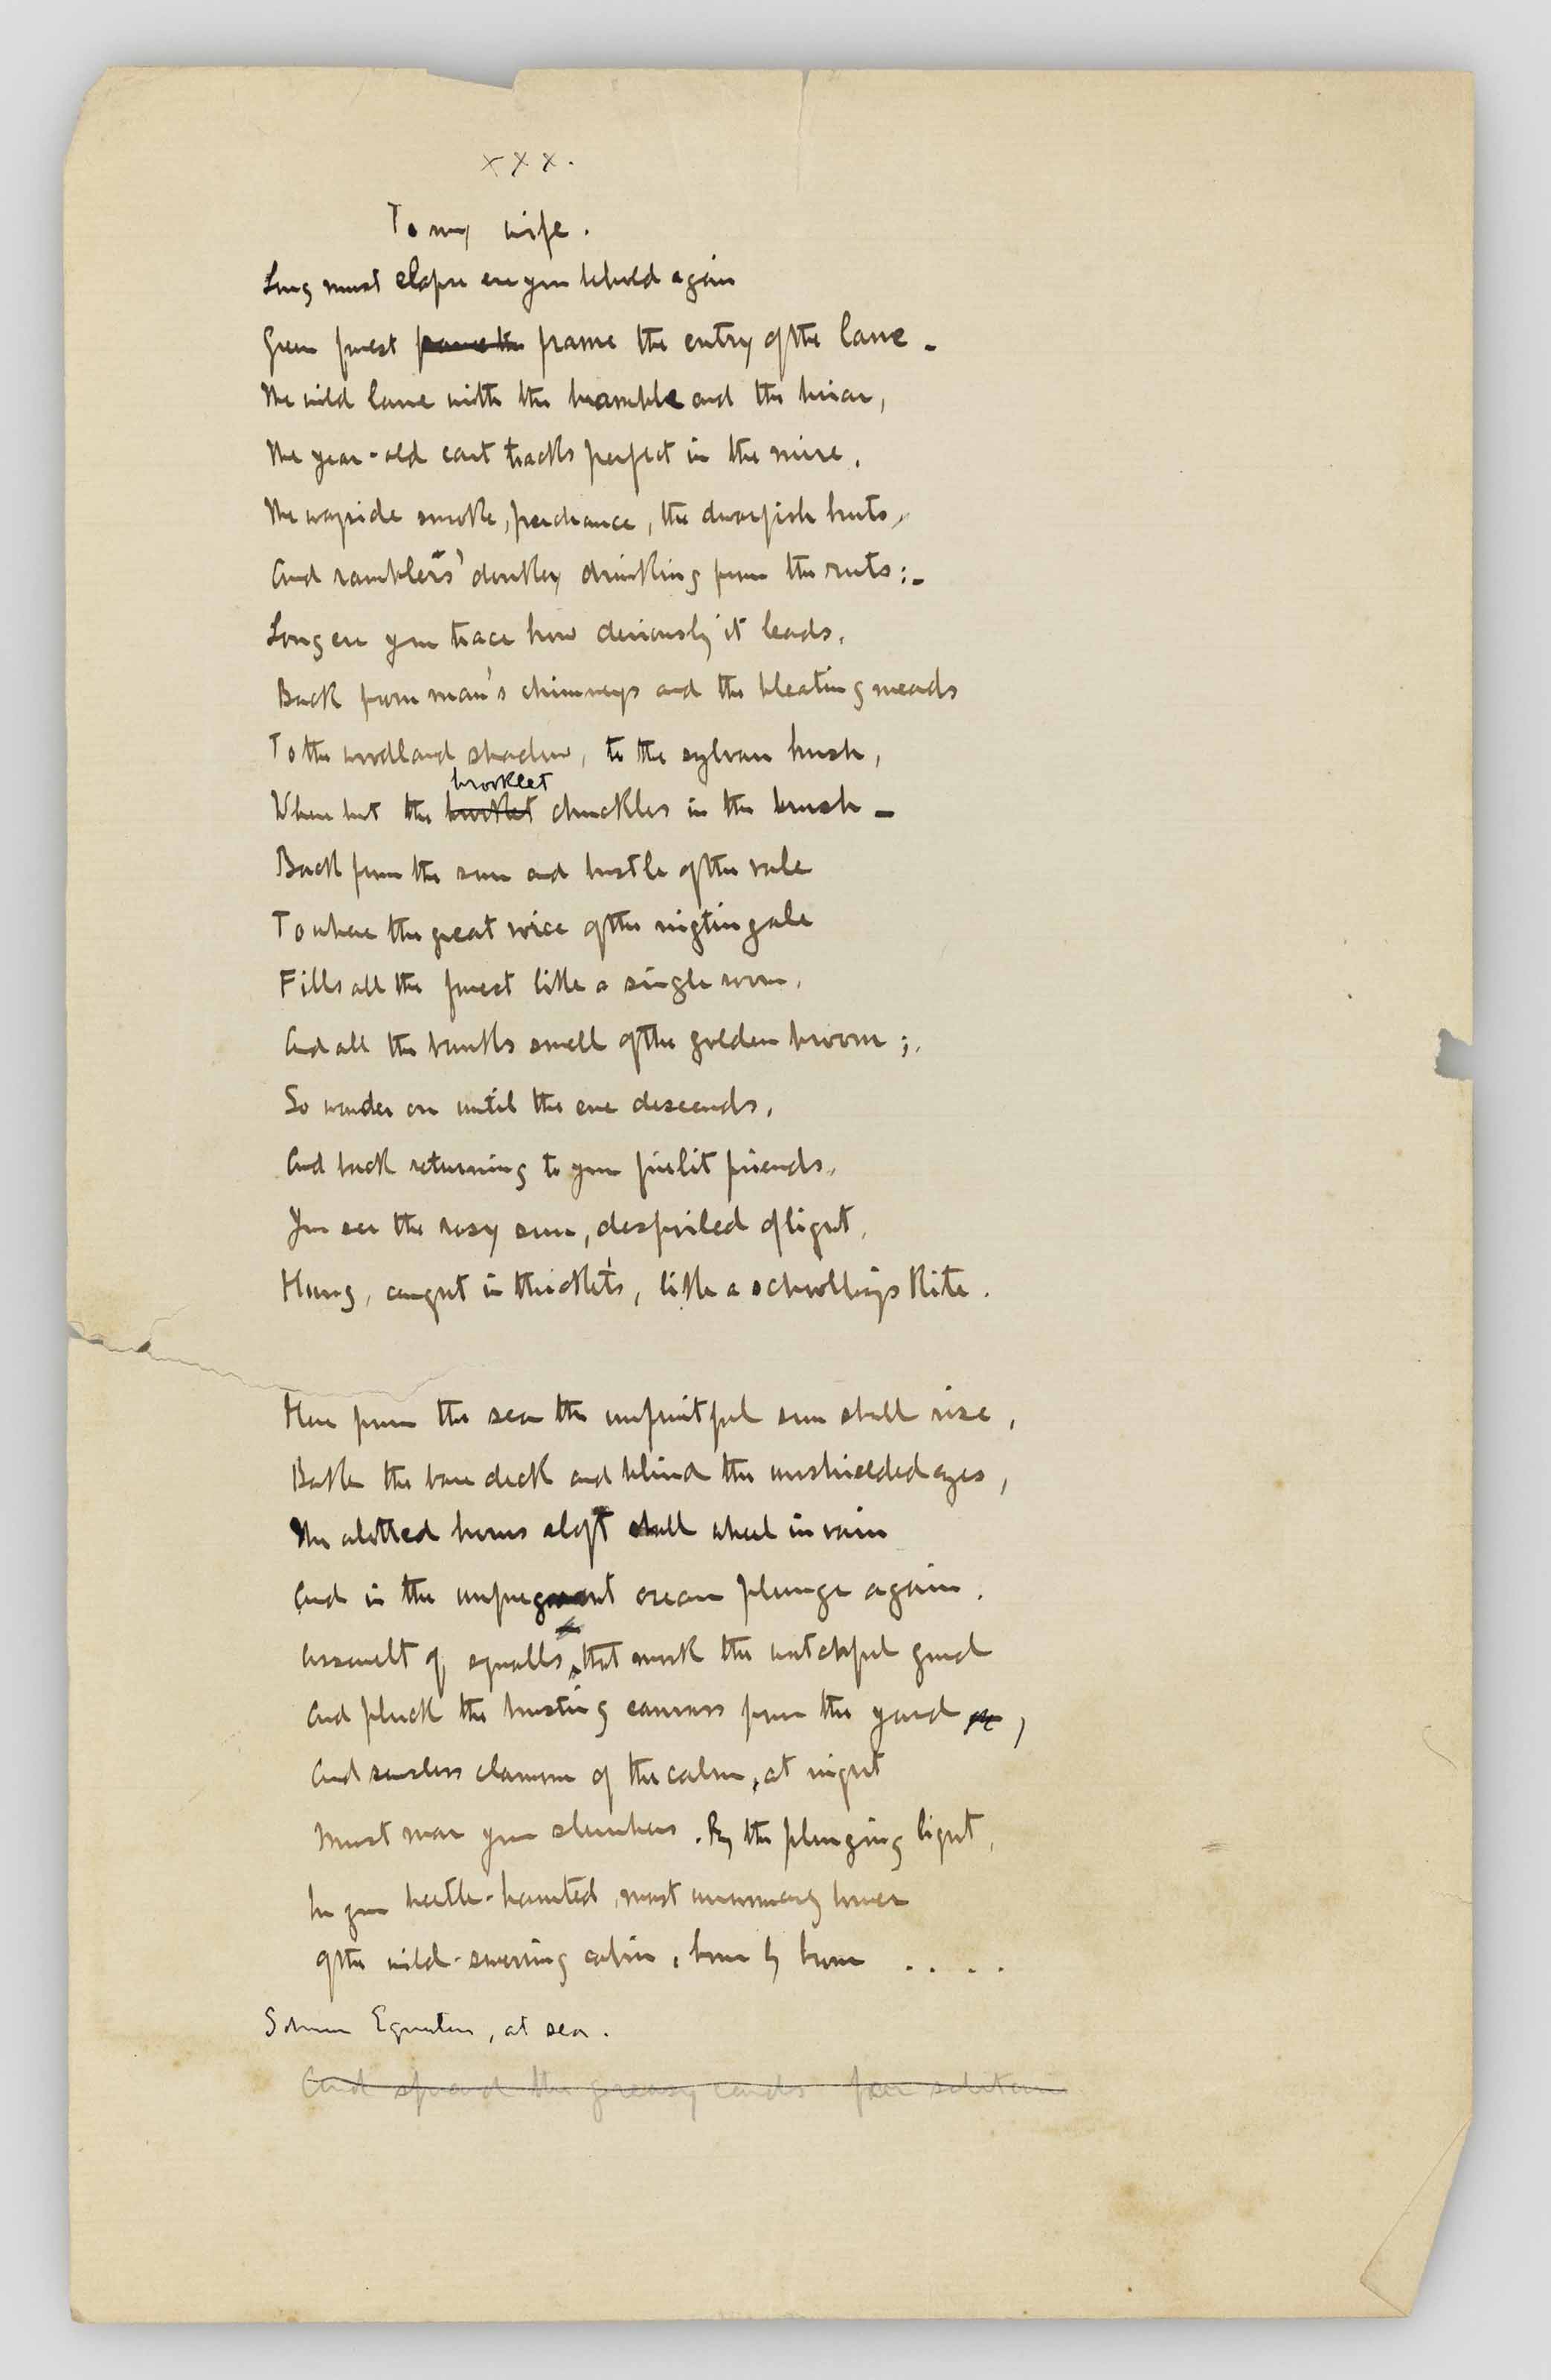 XXX.
To my wife.
Long must elapse ere you behold again
Green forest frame the entry of the lane -
The wild lane with the bramble and the briar,
The year-old cart tracks perfect in the mire,
The wayside smoke, perchance, the dwarfish huts,
And ramblers' donkey drinking from the ruts:-
Long ere you trace how deviously it leads,
Back from man's chimneys and the bleating meads
To the woodland shadow, to the sylvan hush,
When but the brooklet chuckles in the brush -
Back from the sun and bustle of the vale
To where the great voice of the nigtingale
Fills all the forest like a single room,
And all the banks smell of the golden broom;
So wander on until the eve descends,
And back returning to your firelit friends,
You see the rosy sun, despoiled of light,
Hung, caught in thickets, like a schoolboys kite.
Here from the sea the unfruitful sun shall rise,
Bathe the bare deck and blind the unshielded eyes,
The alotted hours aloft shall wheel in vain
And in the unpregnant ocean plunge again.
Assault of squalls that mock the watchful guard
And pluck the bursting canvass from the yard,
And senseless clamour of the calm, at night
Must mar your slumbers. By the plunging light,
In your beetle-haunted, most unwomanly bower
Of the wild-swerving cabin, hour by hour ....
Schooner Equator, at sea.
And spread the greasy cards for solitaire